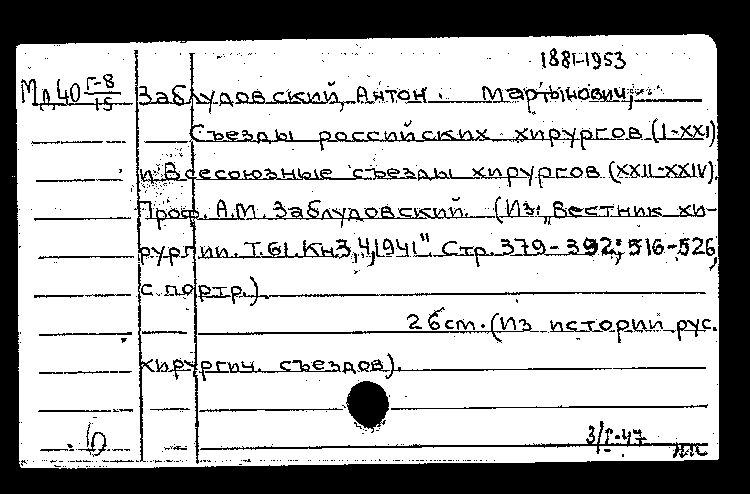 1881-1953
Мд40 Г-8/15 Заблудовский, Антон Мартынович,
Съезды российских хирургов (I-XXI)
и Всесоюзные съезды хирургов (XXII-XXIV).
Проф. А.М. Заблудовский. (Из: „Вестник хи-
рургии. Т.61. Кн3,4,1941" Стр. 379-392; 516-526,
с портр.).
26см. (Из истории рус.
хирургич. съездов).
б
3/I-47